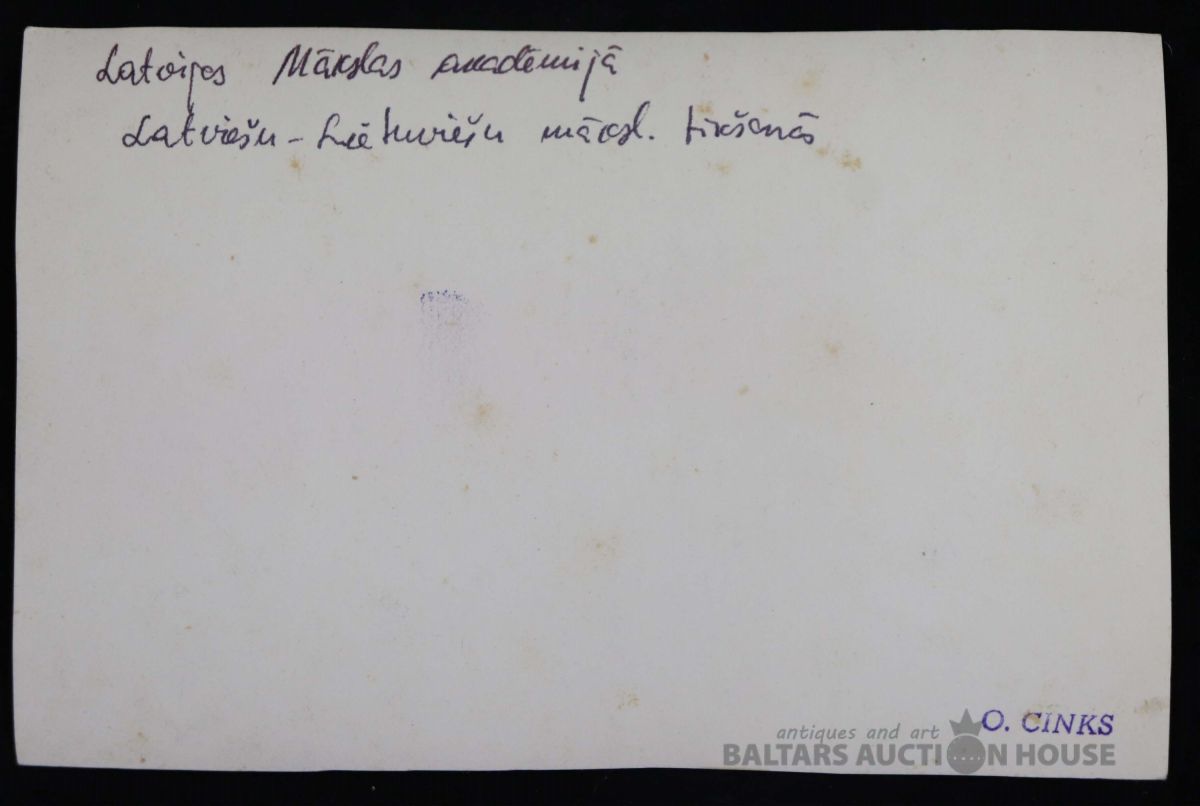 Latvijas Mākslas akadēmijā
Latviešu - Lietuviešu māksl. tikšanās
O. CINKS
antiques and art
BALTARS AUCTION HOUSE